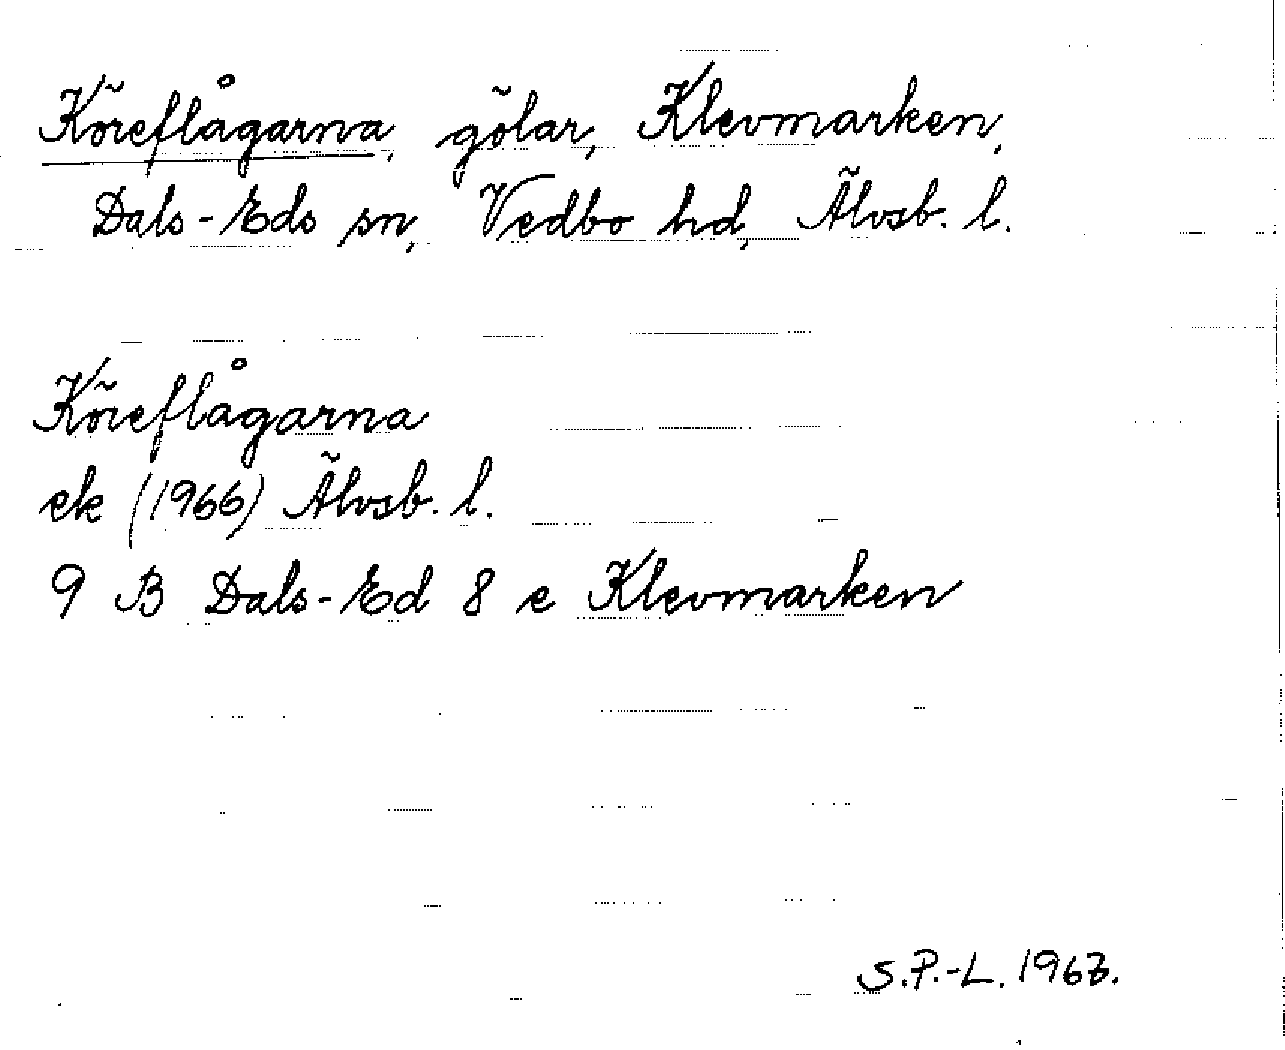 Köreflågarna, gölar, Klevmarken,
Dals-Eds sn, Vedbo hd, Älvsb. l.
Köreflågarna
ek (1966) Älvsb. l.
9 B Dals-Ed 8 e Klevmarken
S.P.-L.